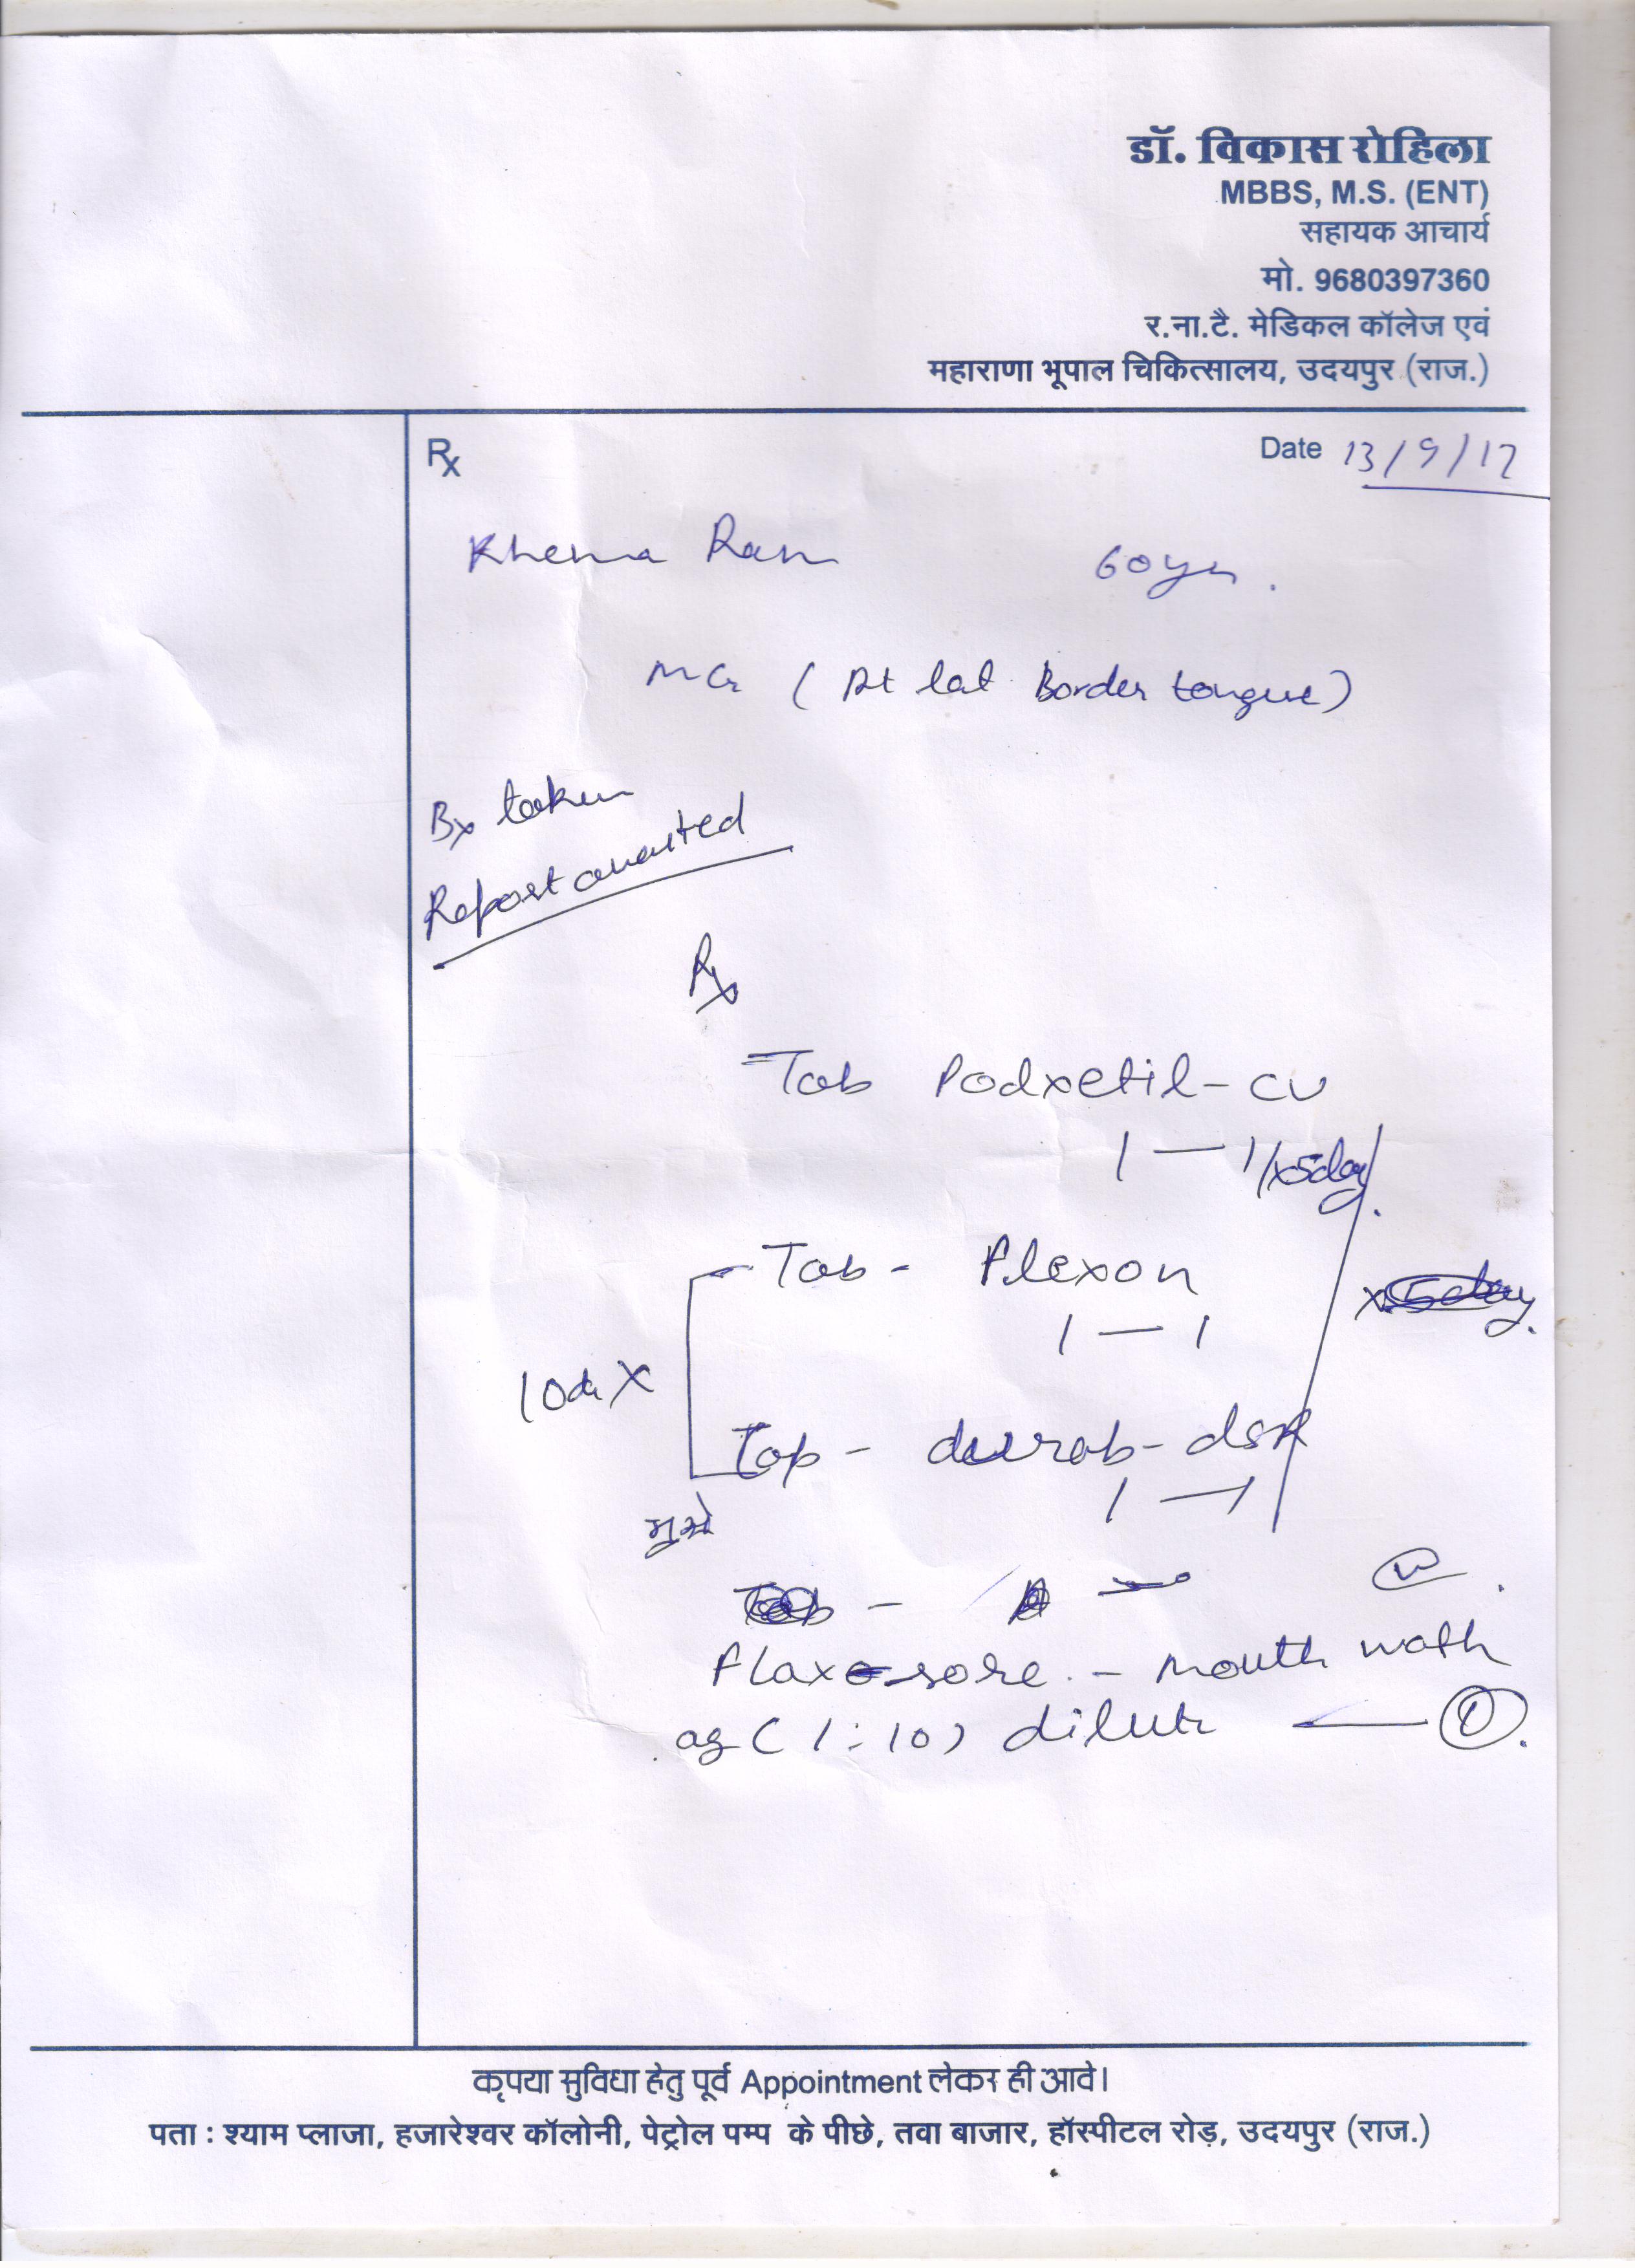 डॉ. विकास रोहिला
MBBS, M.S. (ENT)
सहायक आचार्य
मो. 9680397360
र.ना.टै. मेडिकल कॉलेज एवं
महाराणा भूपाल चिकित्सालय, उदयपुर (राज.)
Rx
Date 13/9/17
Khema Ram 60yr.
(Rt lat. Border tongue)
Bx taken
Report awaited
Rx
Tab Podxetil-CV
1 — 1 /x5day.
Tab - Flexon
1 — 1
10da X
Cap - durab-dsr
1 — 1
Flaxo-sore. - mouth wash
ag (1:10) dilute ①.
कृपया सुविधा हेतु पूर्व Appointment लेकर ही आवे।
पता : श्याम प्लाजा, हजारेश्वर कॉलोनी, पेट्रोल पम्प के पीछे, तवा बाजार, हॉस्पीटल रोड़, उदयपुर (राज.)